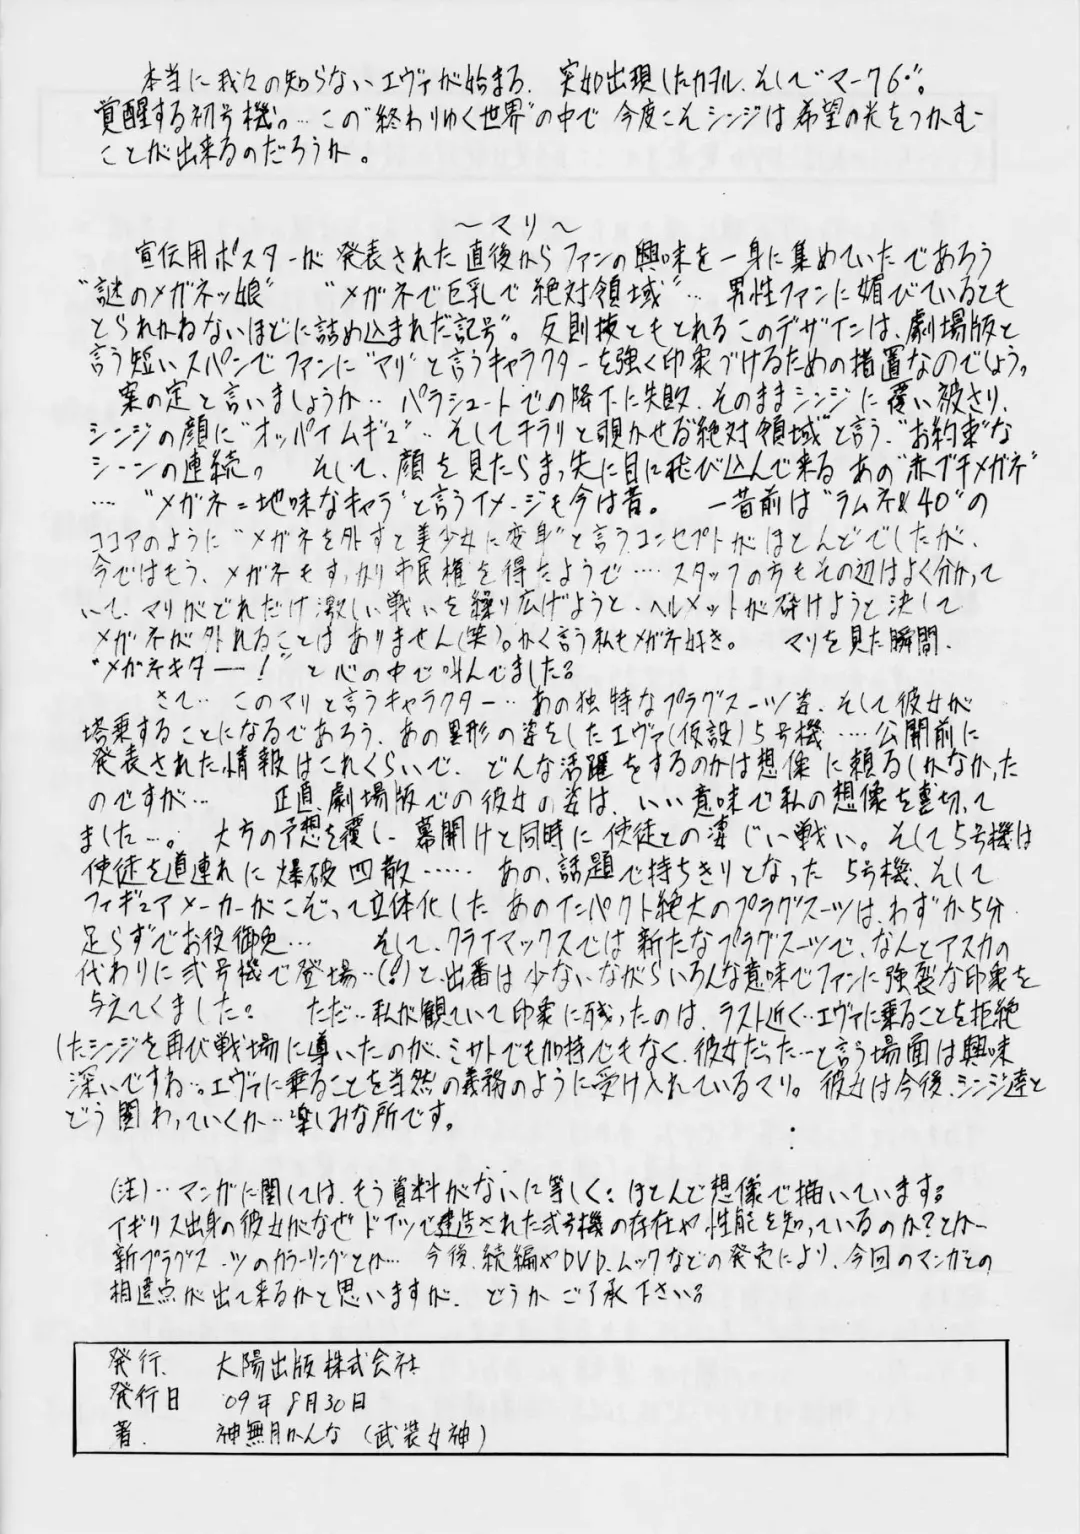 本当に我々の知らないエヴァが始まる。突如出現したカヲル、そして"マーク6"。
覚醒する初号機。…この"終わりゆく世界"の中で今度こそシンジは希望の光をつかむ
ことが出来るのだろうか。
〜マリ〜
宣伝用ポスターが発表された直後からファンの興味を一身に集めていたであろう
"謎のメガネッ娘" "メガネで巨乳で絶対領域"… 男性ファンに媚びているとも
とられかねないほどに詰め込まれた"記号"。反則技ともとれるこのデザインは、劇場版と
言う短いスパンでファンに"マリ"と言うキャラクターを強く印象づけるための措置なのでしょう。
案の定と言いましょうか… パラシュートでの降下に失敗、そのままシンジに覆い被さり、
シンジの顔に"オッパイムギュ"… そしてチラリと覗かせる"絶対領域"と言う、"お約束"な
シーンの連続。 そして、顔を見たらまっ先に目に飛び込んで来るあの"赤ブチメガネ"
…. "メガネ=地味なキャラ"と言うイメージも今は昔。 一昔前は"ラムネ&40"の
ココアのように"メガネを外すと美少女に変身"と言うコンセプトがほとんどでしたが、
今ではもう、メガネもすっかり市民権を得たようで…. スタッフの方もその辺はよく分かって
いて、マリがどれだけ激しい戦いを繰り広げようと、ヘルメットが砕けようと決して
メガネが外れることはありません(笑)。かく言う私もメガネ好き。 マリを見た瞬間、
"メガネキター!"と心の中で叫んでました。
さて… このマリと言うキャラクター… あの独特なプラグスーツ姿、そして彼女が
塔乗することになるであろう、あの異形の姿をしたエヴァ(仮設)5号機…. 公開前に
発表された情報はこれくらいで、どんな活躍をするのかは想像に頼るしかなかった
のですが… 正直、劇場版での彼女の姿は、いい意味で私の想像を裏切って
ました…。 大方の予想を覆し、幕開けと同時に使徒との凄じい戦い。そして5号機は
使徒を道連れに爆破四散…… あの、話題で持ちきりとなった5号機、そして
フィギュアメーカーがこぞって立体化したあのインパクト絶大のプラグスーツは、わずか5分
足らずでお役御免… そして、クライマックスでは新たなプラグスーツで、なんとアスカの
代わりに弐号機で登場…(!)と、出番は少ないながらいろんな意味でファンに強裂な印象を
与えてくました。 ただ…私が観ていて印象に残ったのは、ラスト近く…エヴァに乗ることを拒絶
したシンジを再び戦場に導いたのが、ミサトでも加持でもなく、彼女だった…と言う場面は興味
深いですね…。エヴァに乗ることを当然の義務のように受け入れているマリ。彼女は今後、シンジ達と
どう関わっていくか…楽しみな所です。
(注)…マンガに関しては、もう資料がないに等しく、ほとんど想像で描いています。
イギリス出身の彼女がなぜドイツで建造された弐号機の存在や性能を知っているのか?とか
新プラグスーツのカラーリングとか… 今後、続編やDVD、ムックなどの発売により、今回のマンガとの
相違点が出て来るかと思いますが、どうかご了承下さい。
発行. 大陽出版株式会社
発行日 '09年8月30日
著. 神無月かんな(武装女神)